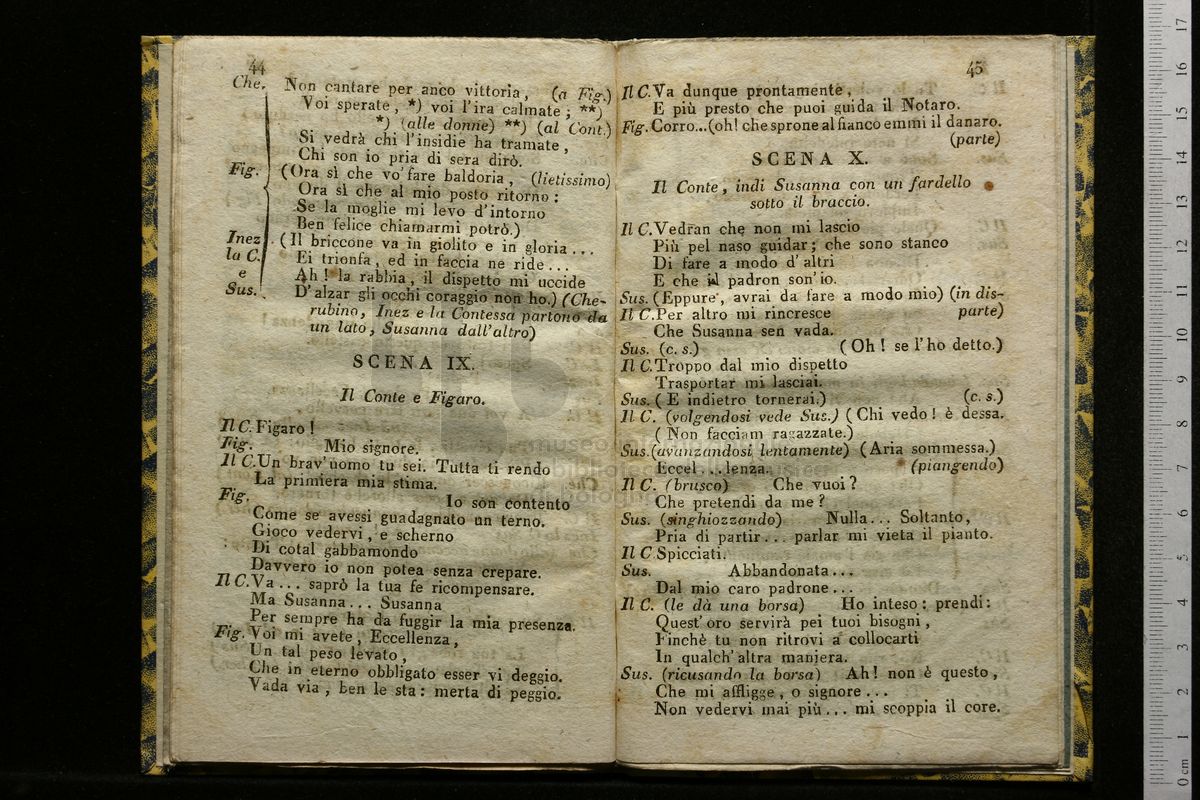 44
Che. Non cantare per anco vittoria, (a Fig.)
Voi sperate, *) voi l'ira calmate; **)
*) (alle donne) **) (al Cont.)
Si vedrà chi l'insidie ha tramate,
Chi son io pria di sera dirò.
Fig. (Ora sì che vo' fare baldoria, (lietissimo)
Ora sì che al mio posto ritorno:
Se la moglie mi levo d'intorno
Ben felice chiamarmi potrò.)
Inez (Il briccone va in giolito e in gloria...
la C. Ei trionfa, ed in faccia ne ride...
e Ah! la rabbia, il dispetto mi uccide
Sus. D'alzar gli occhi coraggio non ho.) (Che-
rubino, Inez e la Contessa partono da
un lato, Susanna dall'altro)
SCENA IX.
Il Conte e Figaro.
Il C. Figaro!
Fig. Mio signore.
Il C. Un brav'uomo tu sei. Tutta ti rendo
La primiera mia stima.
Fig. Io son contento
Come se avessi guadagnato un terno.
Gioco vedervi, e scherno
Di cotal gabbamondo
Davvero io non potea senza crepare.
Il C. Va... saprò la tua fe ricompensare.
Ma Susanna... Susanna
Per sempre ha da fuggir la mia presenza.
Fig. Voi mi avete, Eccellenza,
Un tal peso levato,
Che in eterno obbligato esser vi deggio.
Vada via, ben le sta: merta di peggio.
45
Il C. Va dunque prontamente,
E più presto che puoi guida il Notaro.
Fig. Corro...(oh! che sprone al fianco emmi il danaro.
(parte)
SCENA X.
Il Conte, indi Susanna con un fardello
sotto il braccio.
Il C. Vedran che non mi lascio
Più pel naso guidar; che sono stanco
Di fare a modo d'altri
E che il padron son'io.
Sus. (Eppure, avrai da fare a modo mio) (in dis-
Il C. Per altro mi rincresce parte)
Che Susanna sen vada.
Sus. (c. s.) (Oh! se l'ho detto.)
Il C. Troppo dal mio dispetto
Trasportar mi lasciai.
Sus. (E indietro tornerai.) (c. s.)
Il C. (volgendosi vede Sus.) (Chi vedo! è dessa.
(Non facciam ragazzate.)
Sus. (avanzandosi lentamente) (Aria sommessa.)
Eccel...lenza. (piangendo)
Il C. (brusco) Che vuoi?
Che pretendi da me?
Sus. (singhiozzando) Nulla... Soltanto,
Pria di partir... parlar mi vieta il pianto.
Il C. Spicciati.
Sus. Abbandonata...
Dal mio caro padrone...
Il C. (le dà una borsa) Ho inteso: prendi:
Quest'oro servirà pei tuoi bisogni,
Finchè tu non ritrovi a collocarti
In qualch'altra maniera.
Sus. (ricusando la borsa) Ah! non è questo,
Che mi affligge, o signore...
Non vedervi mai più... mi scoppia il core.
0 cm 1 2 3 4 5 6 7 8 9 10 11 12 13 14 15 16 17